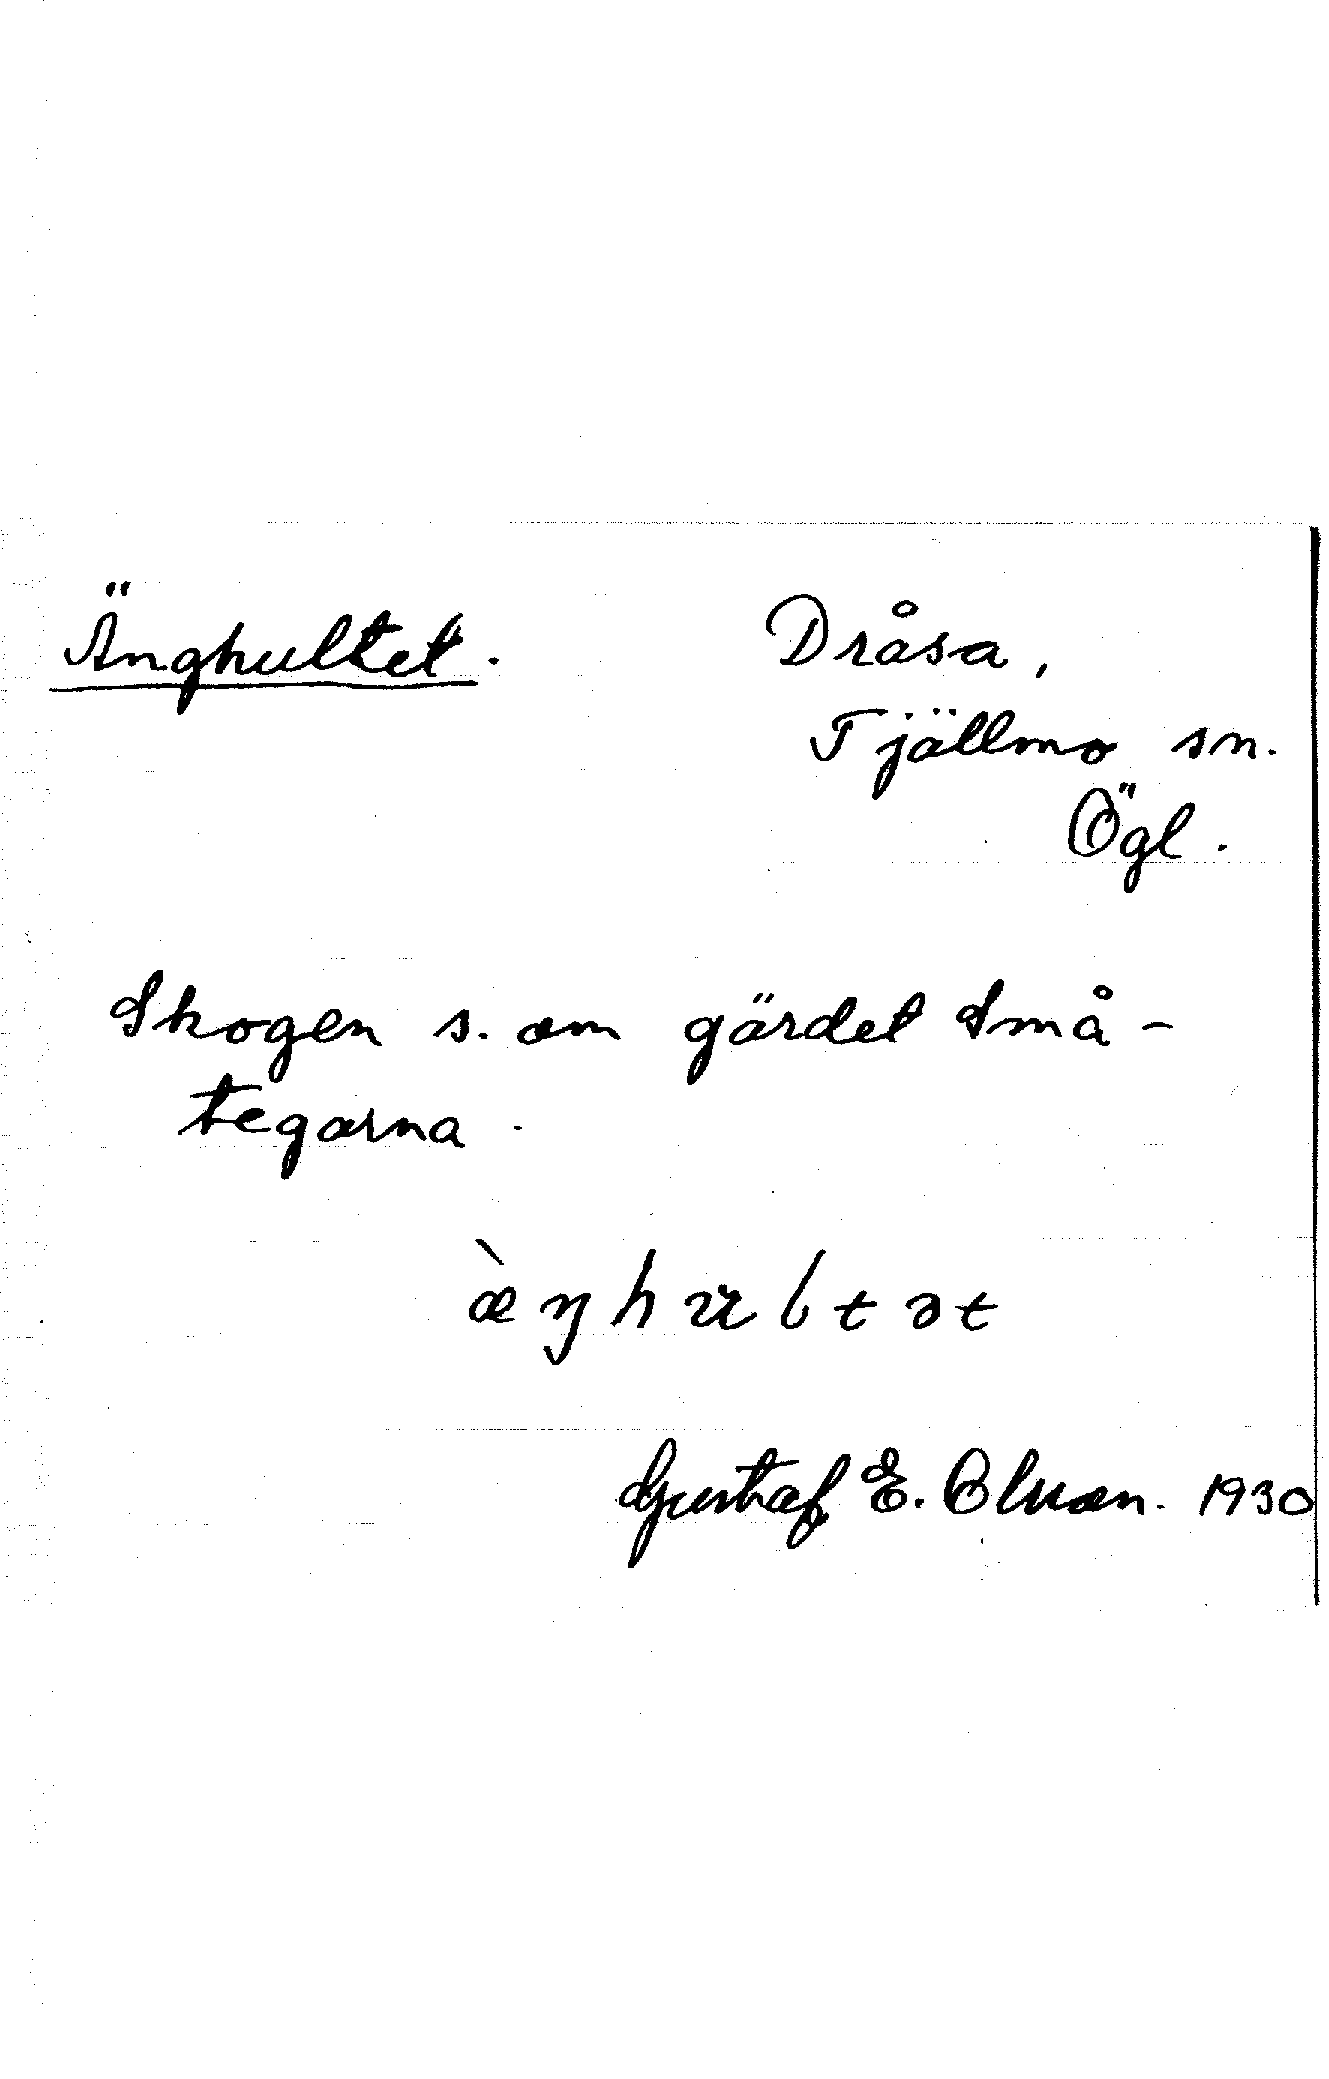 Änghultet.
Dråsa,
Tjällmo sn.
Ögl.
Skogen s. om gärdet Små-
tegarna.
æ̀ŋhultət
Gustaf E. Olsson. 1930